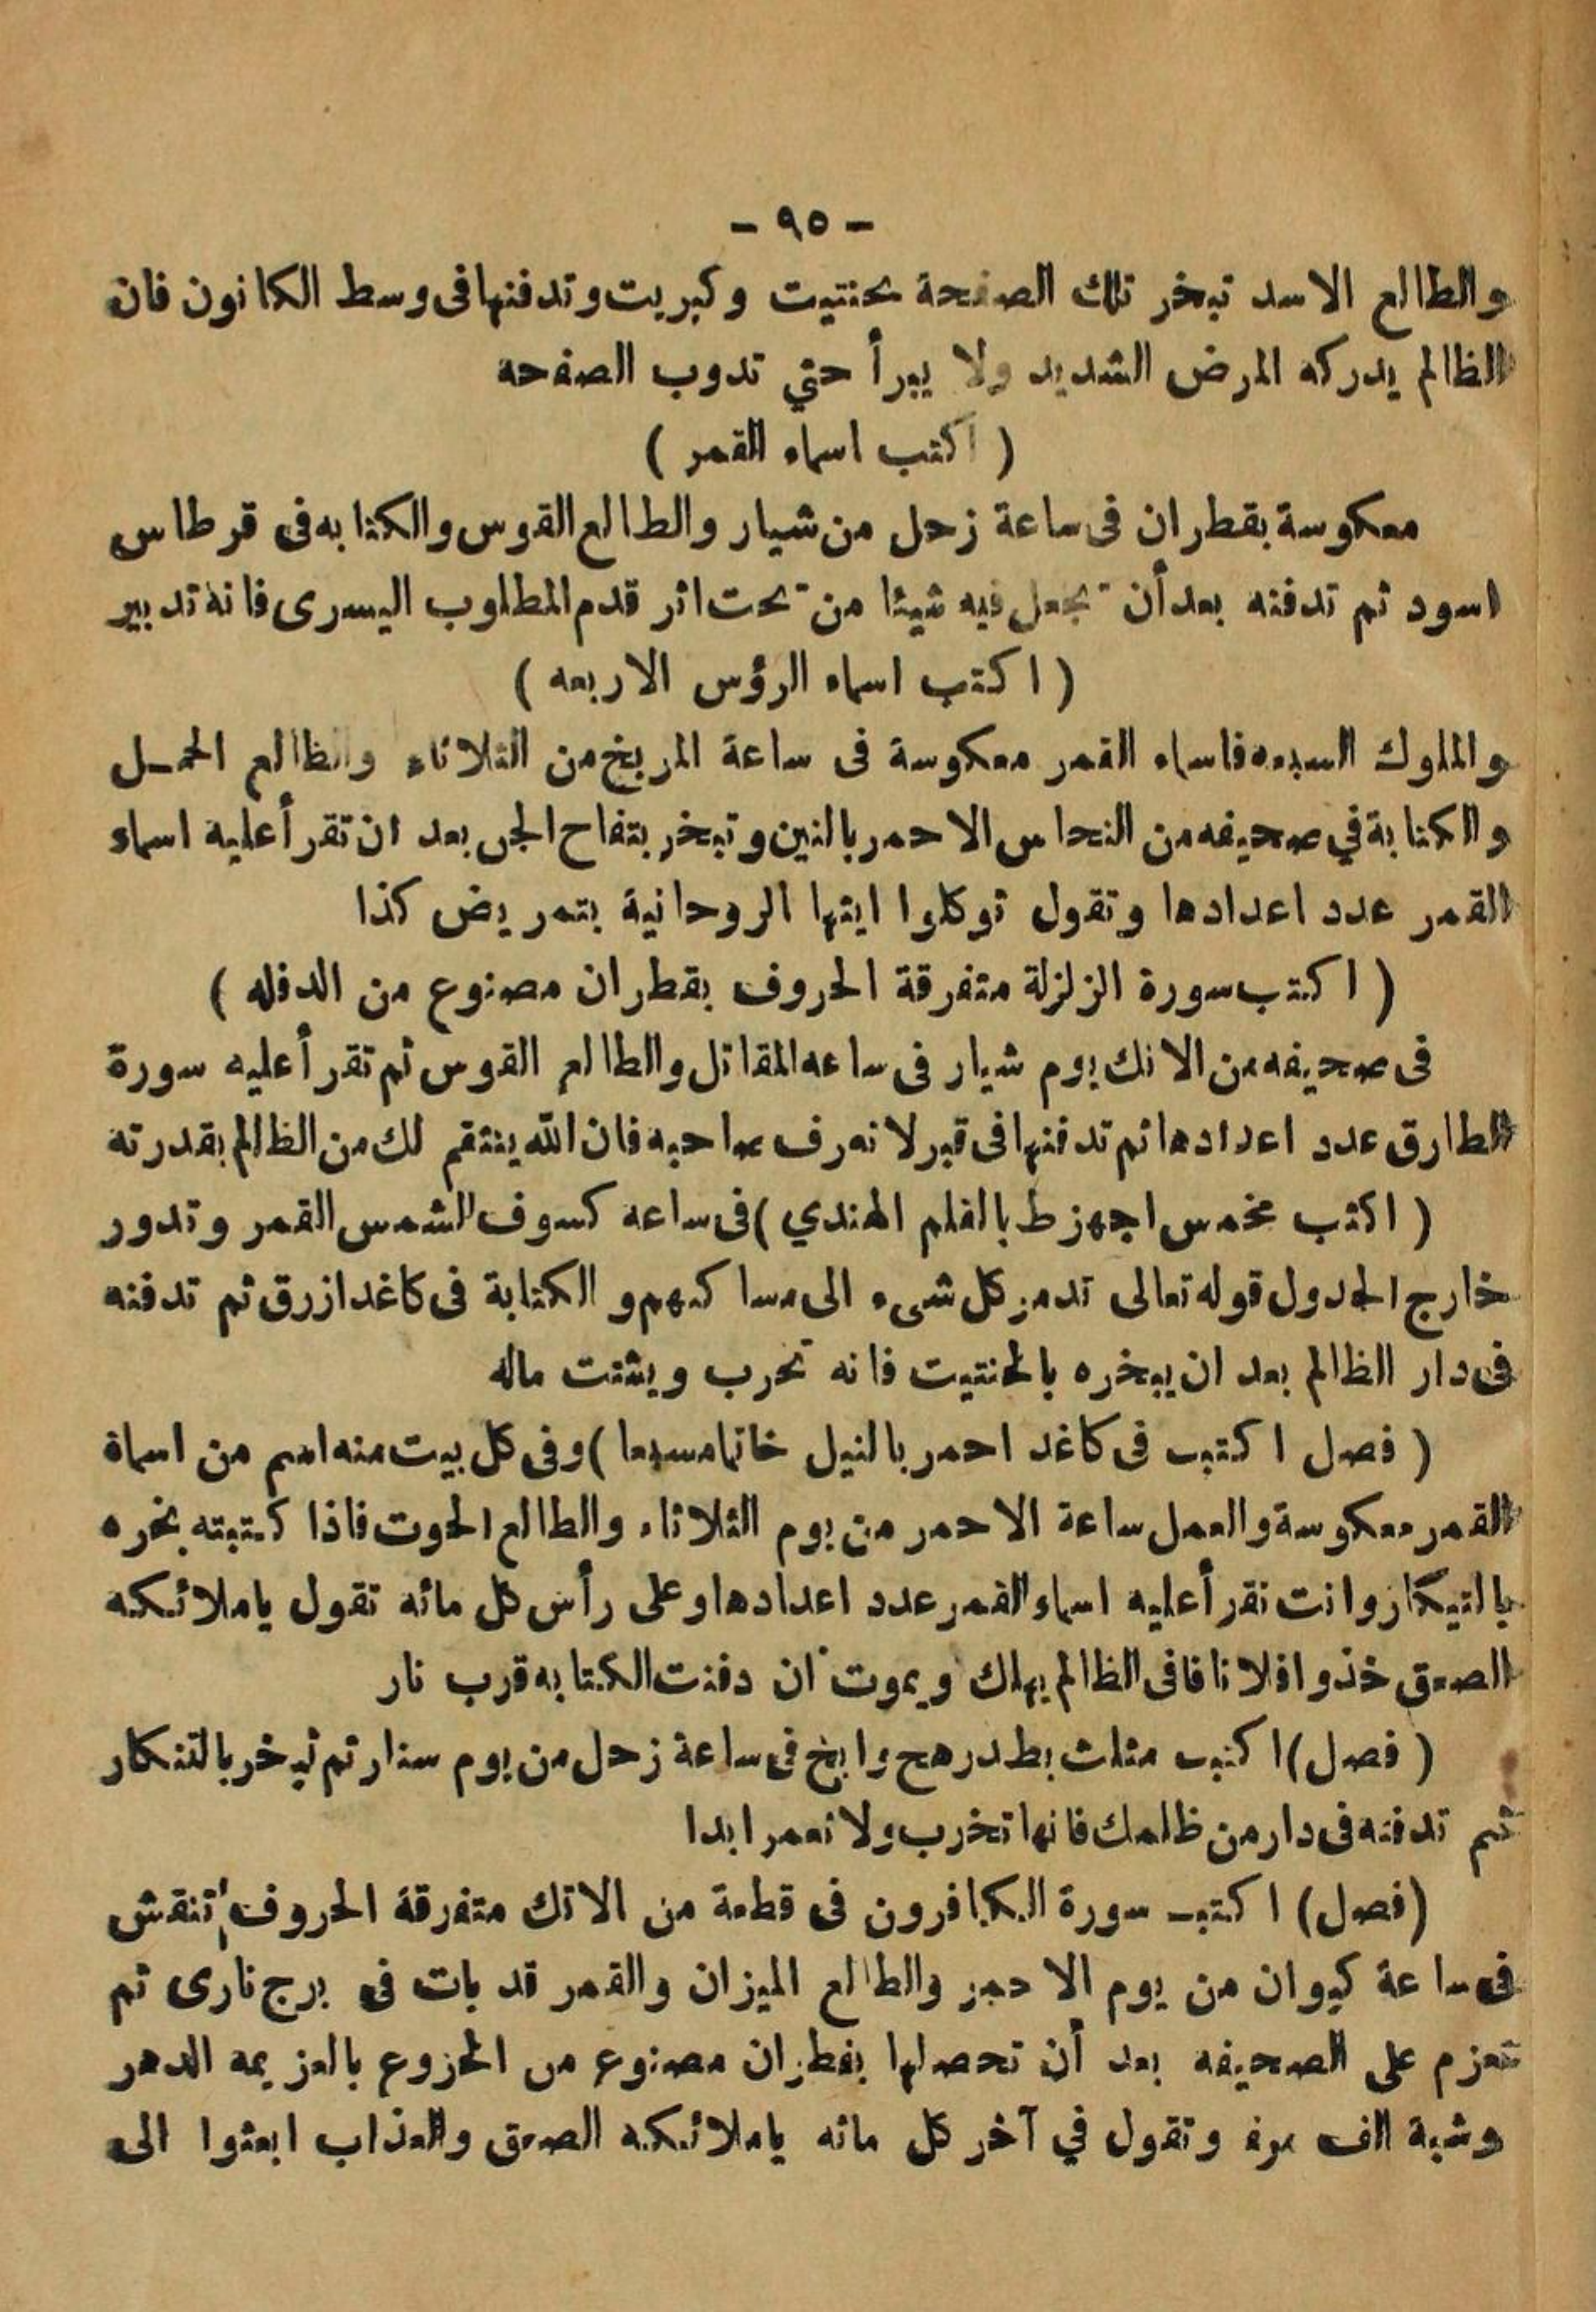 - ٩٥ -
والطالع الاسد تبخر تلك الصفحة بحنتيت وكبريت وتدفنها فى وسط الكانون فان
الظالم يدركه المرض الشديد ولا يبرأ حتي تدوب الصفحه
( اكتب اسماء القمر )
معكوسة بقطران فى ساعة زحل من شيار والطالع القوس والكتابه فى قرطاس
اسود ثم تدفنه بعد أن تجعل فيه شيئا من تحت اثر قدم المطلوب اليسرى فانه تدبير
( اكتب اسماء الرؤس الاربعه )
والملوك السبعه فاسماء القمر معكوسة فى ساعة المريخ من الثلاثاء والظالع الحمـل
والكتابة في صحيفه من النحاس الاحمر بالنين وتبخر بتفاح الجن بعد ان تقرأ عليه اسماء
القمر عدد اعدادها وتقول توكلوا ايتها الروحانية بتمريض كذا
( اكتب سورة الزلزلة متفرقة الحروف بقطران مصنوع من الدفله )
فى صحيفه من الانك يوم شيار فى ساعه المقاتل والطالع القوس ثم تقرأ عليه سورة
الطارق عدد اعدادها ثم تدفنها فى قبر لا تعرف صاحبه فان الله ينتقم لك من الظالم بقدرته
( اكتب مخمس اجهزط بالقلم الهندي ) فى ساعه كسوف الشمس القمر وتدور
خارج الجدول قوله تعالى تدمر كل شىء الى مساكنهم والكتابة فى كاغد ازرق ثم تدفنه
فى دار الظالم بعد ان يبخره بالحنتيت فانه تخرب ويشتت ماله
( فصل اكتب فى كاغد احمر بالنيل خاتما مسبعا ) وفى كل بيت منه اسم من اسماة
القمر معكوسة والعمل ساعة الاحمر من يوم الثلاثاء والطالع الحوت فاذا كتبته بخره
بالتيكار وانت تقرأ عليه اسماء القمر عدد اعدادها وعلى رأس كل مائه تقول ياملائكه
الصعق خذوا فلانا فافى الظالم يهلك ويموت ان دفنت الكتابه قرب نار
( فصل ) اكتب مثلث بطدرهج وابخ فى ساعة زحل من يوم سنار ثم تبخر بالتنكار
ثم تدفنه فى دار من ظلمك فانها تخرب ولا تعمر ابدا
(فصل) اكتب سورة الكافرون فى قطعة من الاتك متفرقة الحروف تنقش
فى ساعة كيوان من يوم الاحمر والطالع الميزان والقمر قد بات فى برج نارى ثم
تعزم على الصحيفه بعد أن تحصلها بقطران مصنوع من الخزوع بالعزيمه الدهر
وشبة الف مرة وتقول في آخر كل مائه ياملائكه الصعق والعذاب ابعثوا الى